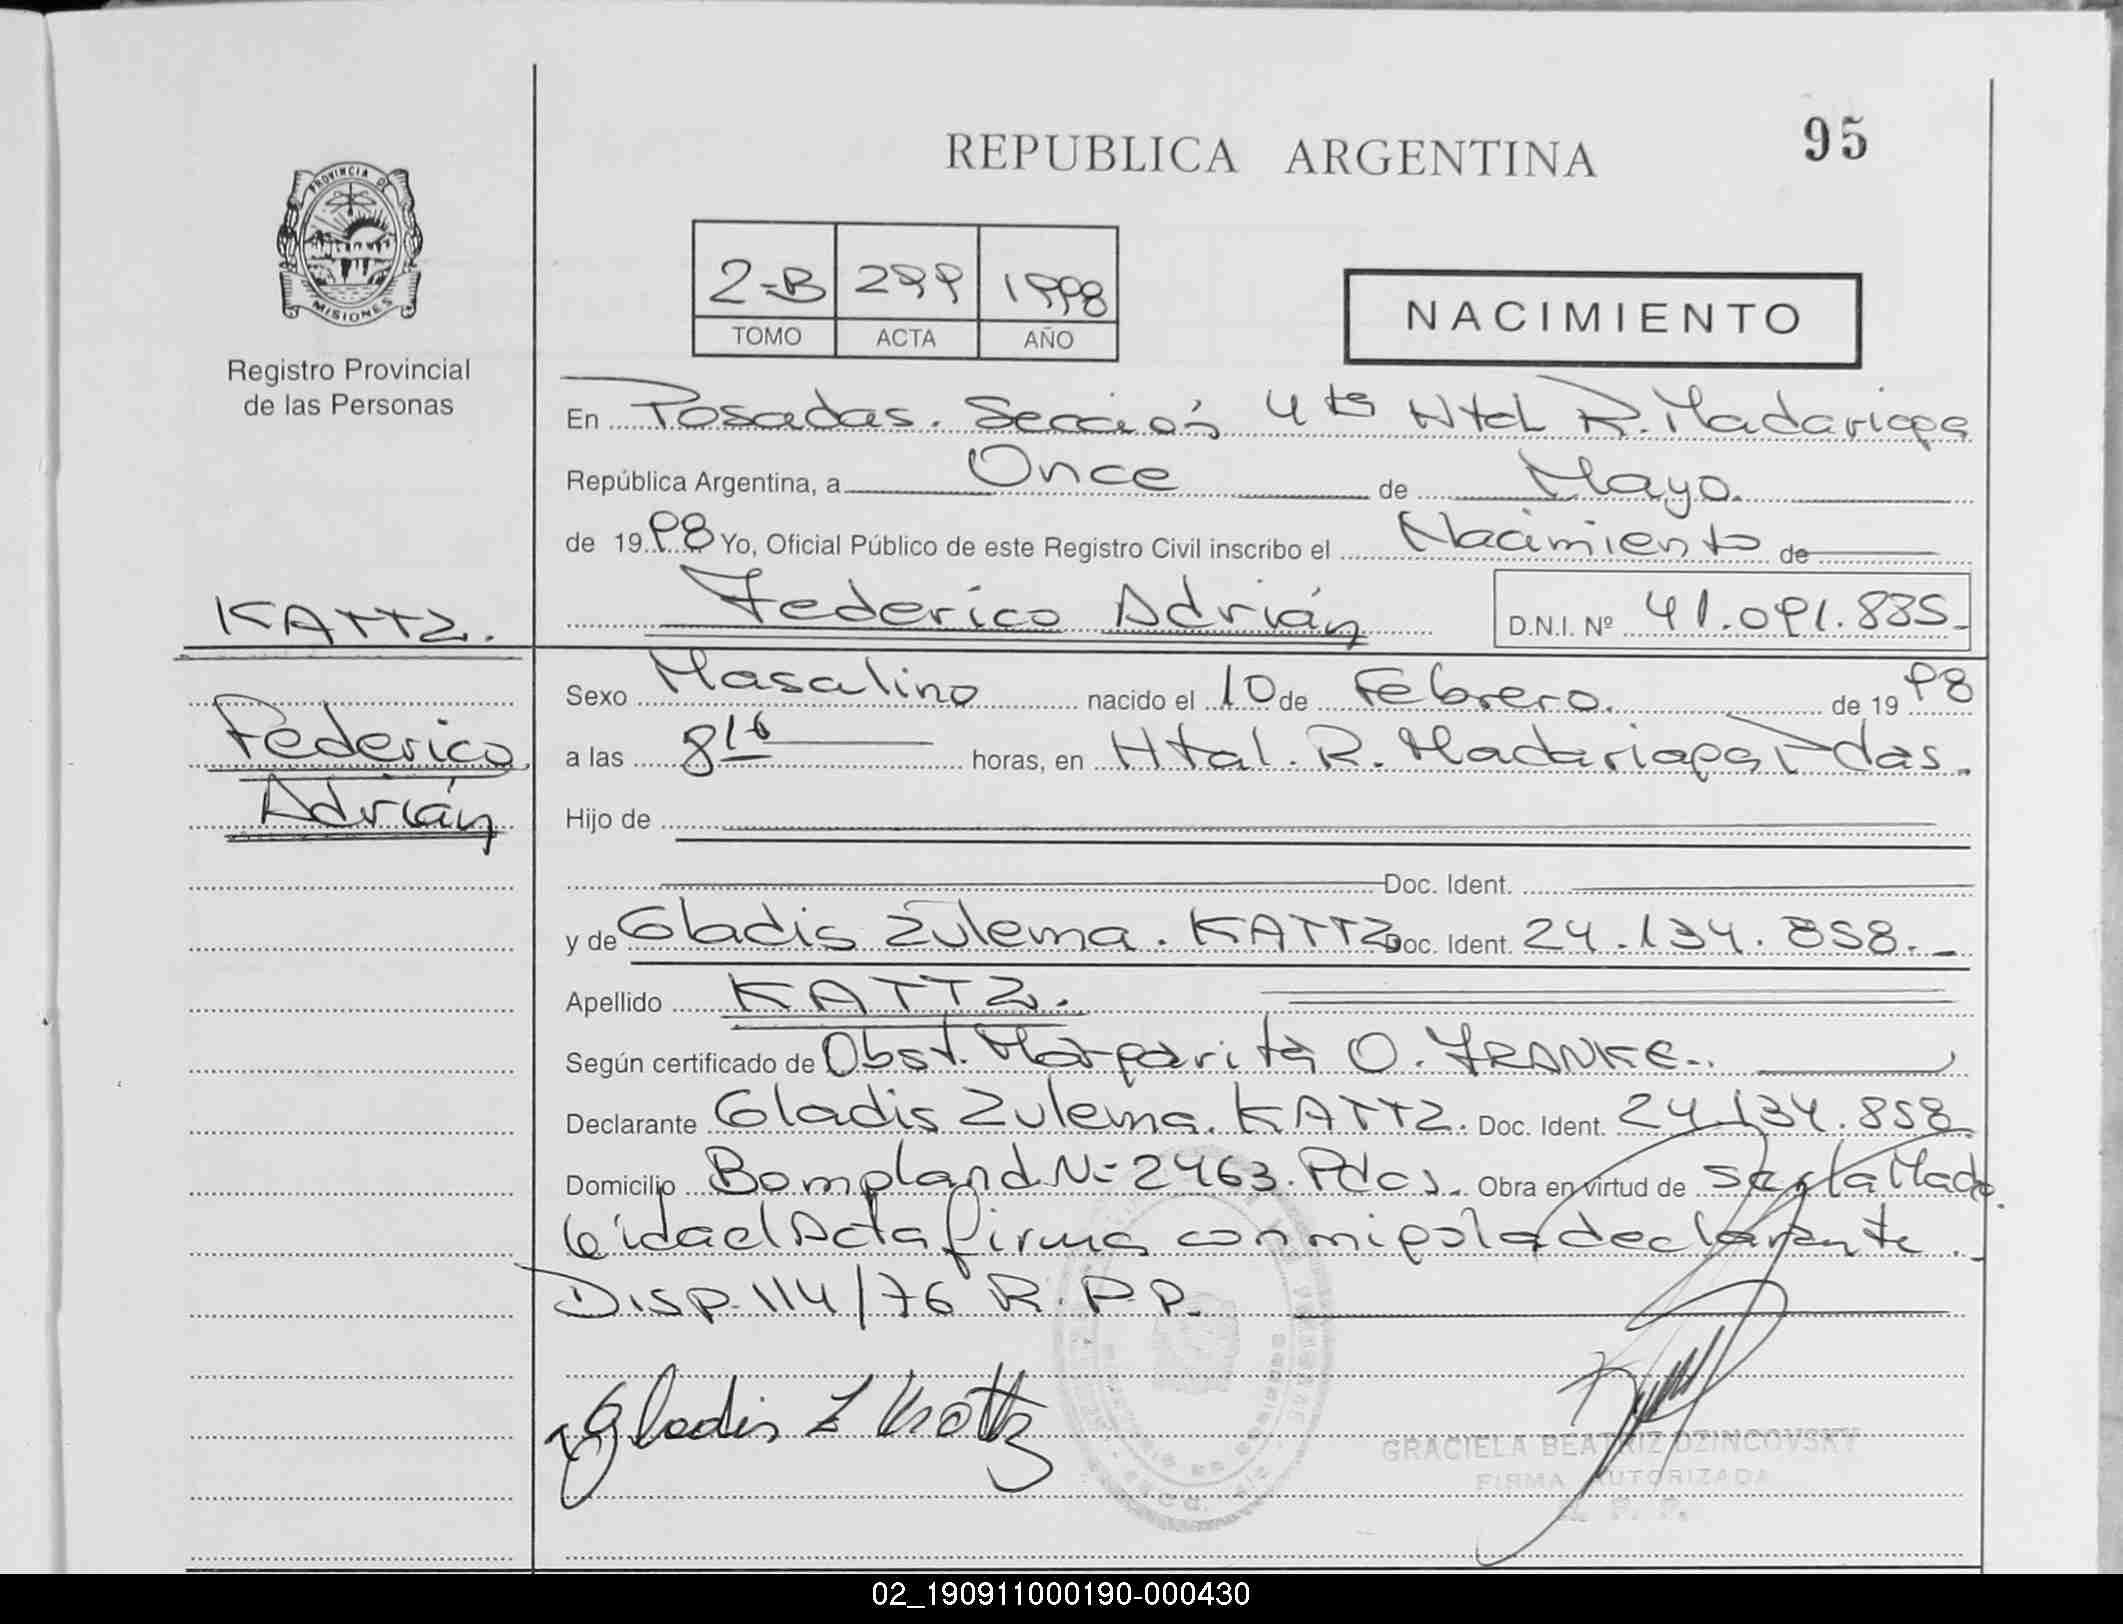 REPUBLICA ARGENTINA
95
PROVINCIA DE
MISIONES
Registro Provincial
de las Personas
2-B 299 1998
TOMO ACTA AÑO
NACIMIENTO
En Posadas. Sección 4ta Htal R. Madariaga
República Argentina, a Once de Mayo.
de 1998 Yo, Oficial Público de este Registro Civil inscribo el Nacimiento de
KATTZ.
Federico Adrián
D.N.I. Nº 41.091.835
Federico
Adrián
Sexo Masculino nacido el 10 de Febrero. de 1998
a las 8 16 horas, en Htal. R. Madariaga Pdas.
Hijo de
Doc. Ident.
y de Gladis Zulema. KATTZ Doc. Ident. 24.134.858.
Apellido KATTZ.
Según certificado de Obst. Margarita O. FRANKE.
Declarante Gladis Zulema. KATTZ. Doc. Ident. 24.134.858
Domicilio Bompland Nº 2463. Pdas. Obra en virtud de
Leída el Acta firma conmigo la declarante.
Disp. 114/76 R.P.P.
Gladis Z Kattz
GRACIELA BEATRIZ OZINCOVSKY
FIRMA AUTORIZADA
R. P. P.
02_190911000190-000430